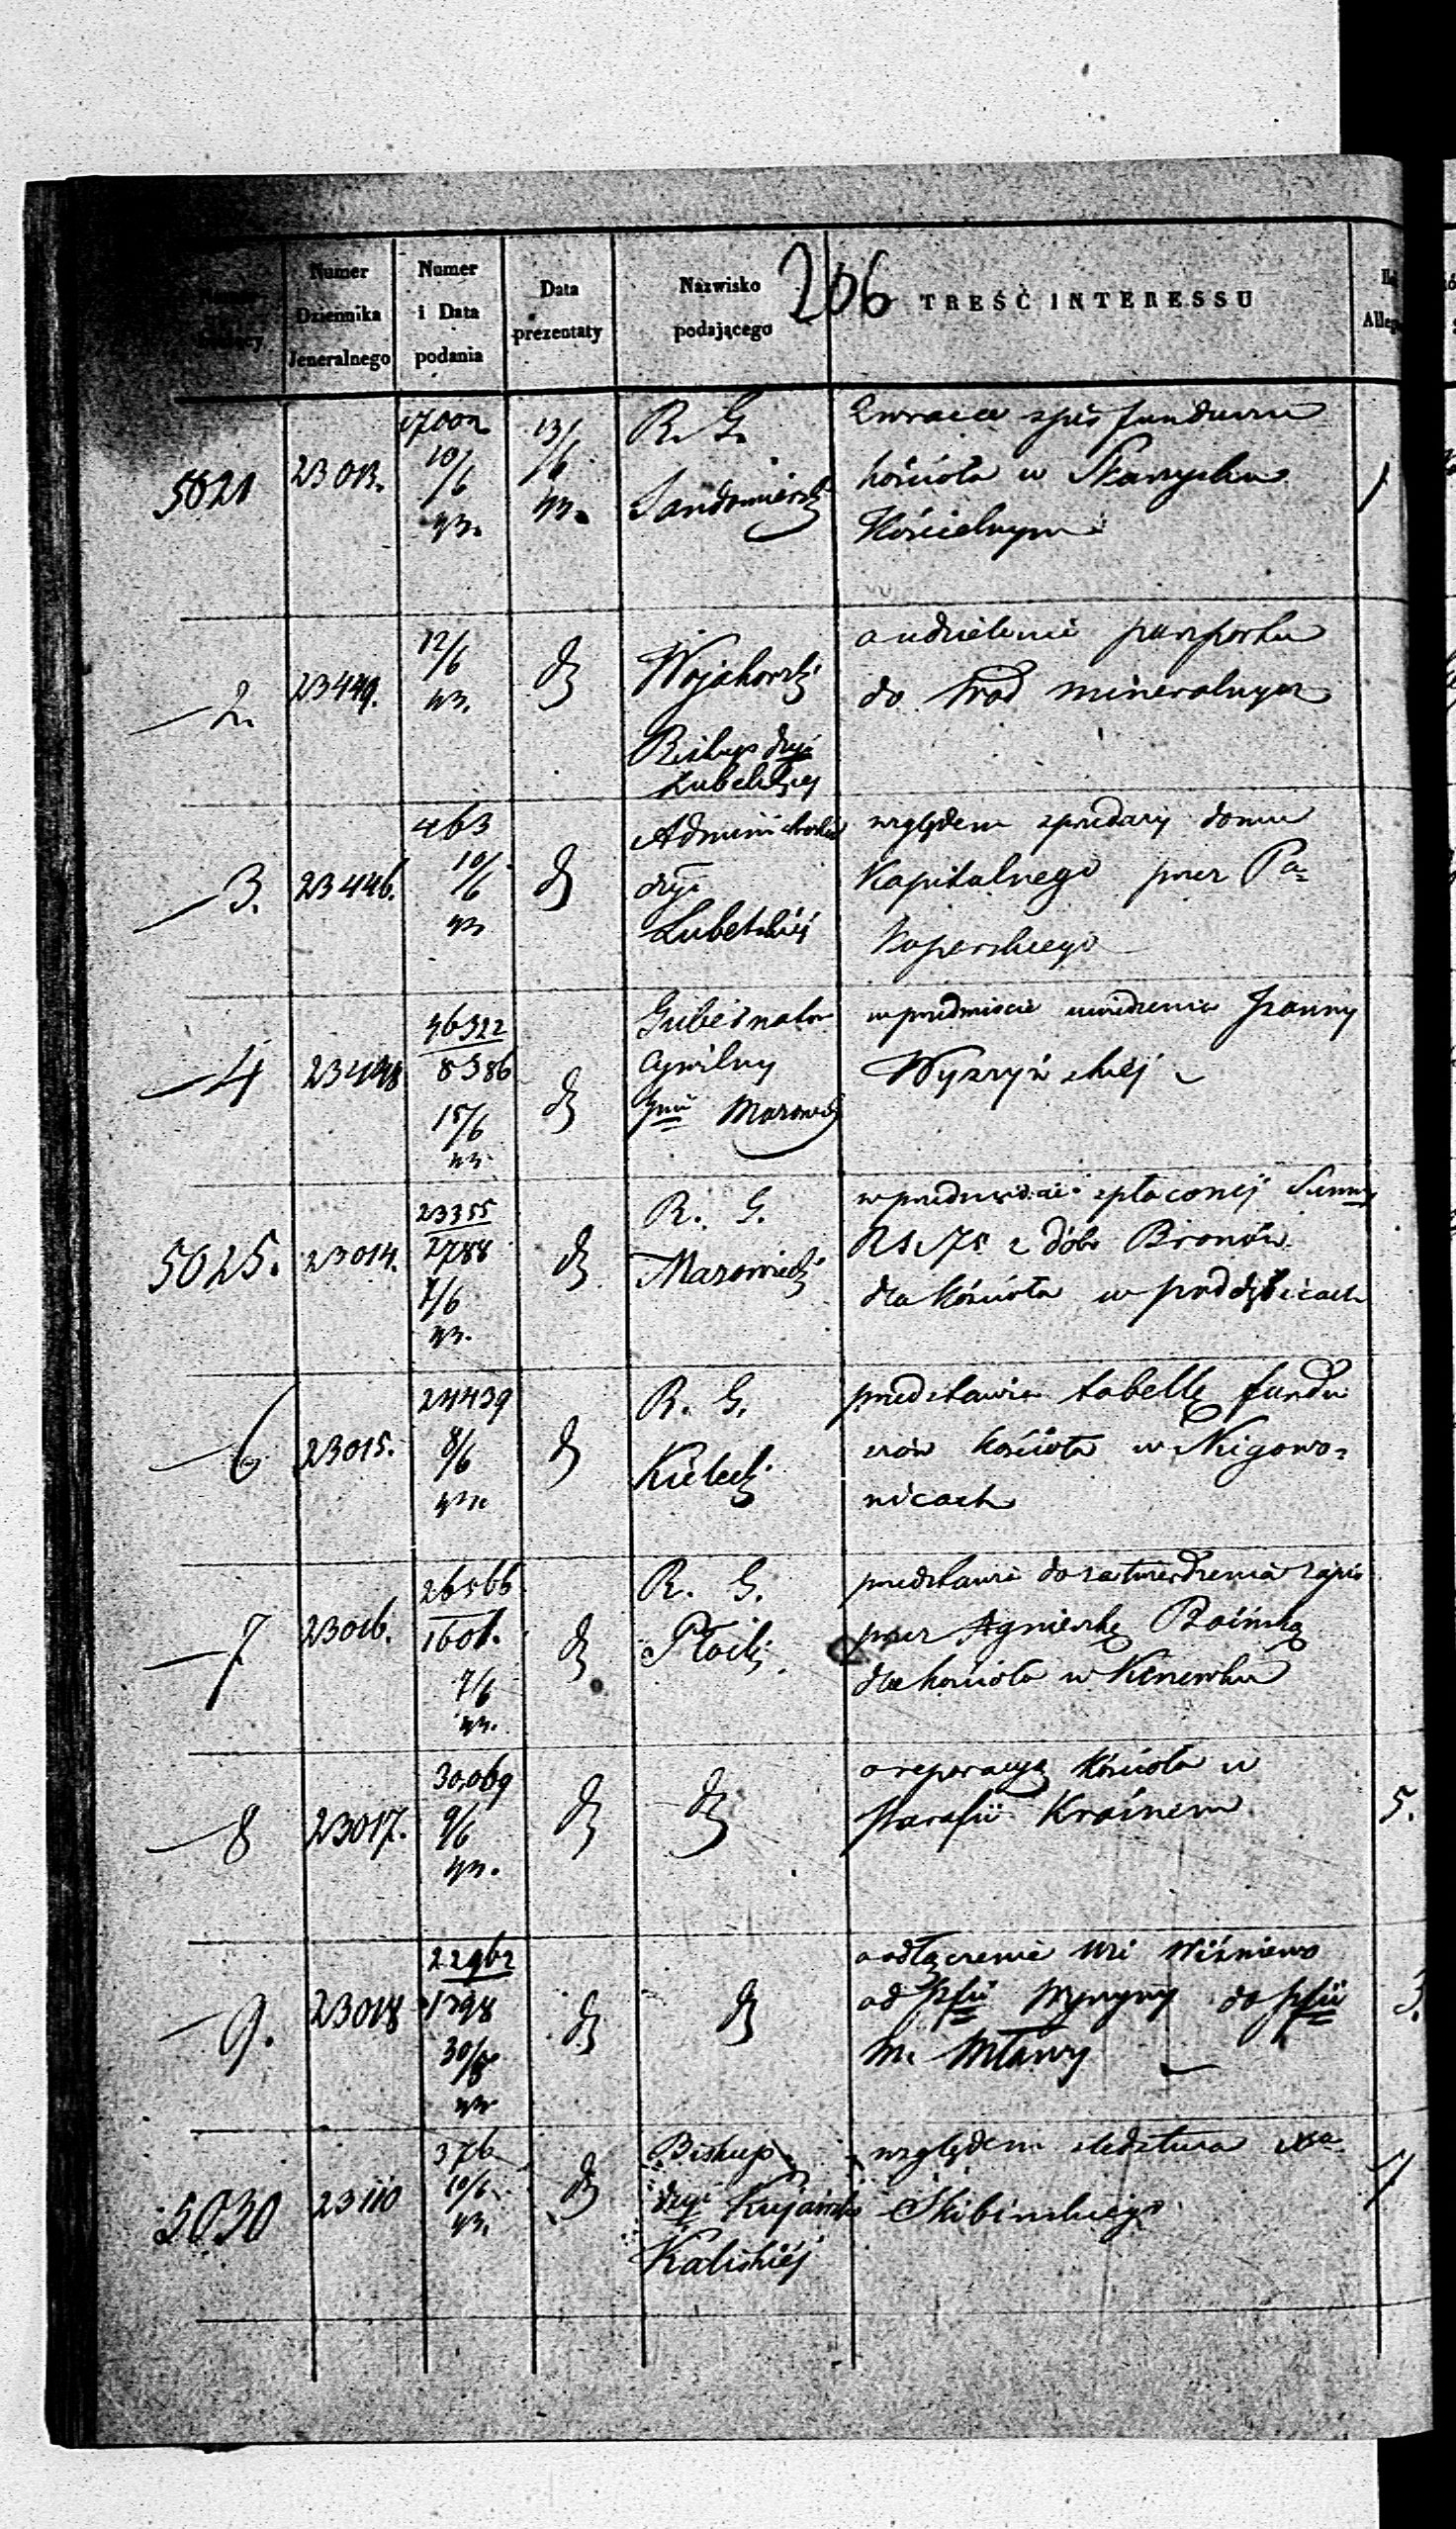 206
Numer Dziennika Jeneralnego
Numer i Data podania
Data prezentaty
Nazwisko podającego
TREŚĆ INTERESSU
5021
23013.
17002
10/6
43.
13/6
43.
R. G.
Sandomierski
Zwraca spis funduszu
kościoła w
Kościelnym
1
2.
23449.
12/6
43.
d
Wojakowski
Biskup dyi
Lubelskiej
o udzielenie paszportu
do wód mineralnych
3.
23446.
463
10/6
43
d
dyi
Lubelskiéj
względem sprzedaży domu
Kapitalnego przez Pa-
4
23448
36322
8386
15/6
43.
d
Gubernator
Cywilny
Gnii Mazowi
w przedmiocie uwiedzenia Joanny
Wyszyńskiéj
5025.
23014.
23355
2788
7/6
43.
d
R. G.
Mazowiecki
w przedmiocie spłaconéj Summy
z dóbr Bronów
dla kościoła w Poddębicach
6
23015.
24439
8/6
43.
d
R. G.
Kielecki
przedstawia tabellę fundu
szów kościoła w Niegowo-
nicach
7
23016.
26566
1601.
7/6
43.
d
R. G.
Płocki
przedstawia do zatwierdzenia zapis
przez Agnieszkę
dla kościoła w
8
23017.
30069
9/6
43.
d
d
o reperacyą kościoła w
Parafii Kraśnem
5.
9.
23018
22962
1298
30/5
43
d
d
o odłączenie wsi Wiśniewo
od Pfii Wyszyny do pfii
m. Mławy
3.
5030
23110
376
10/6
43.
d
Biskup
dyi Kujawsko
Kaliskiéj
względem śledztwa Xa
Skibińskiego